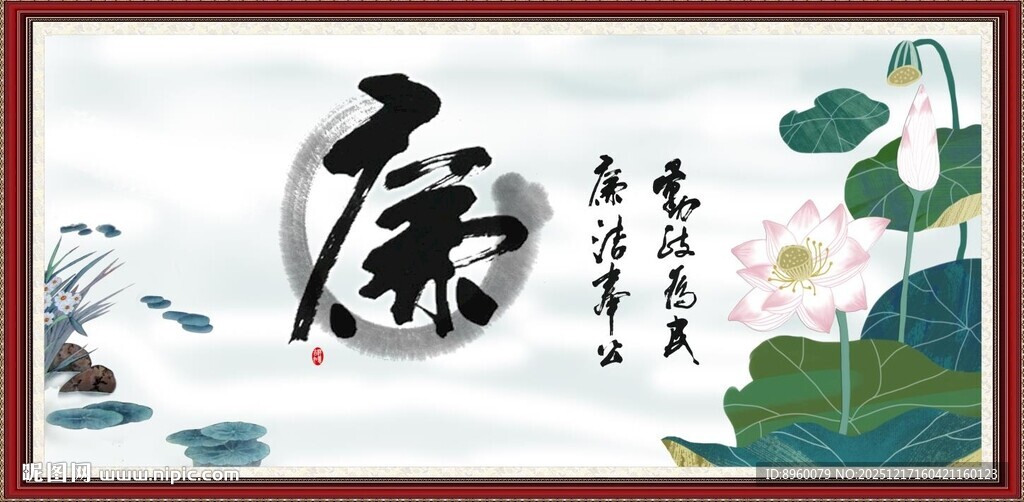 廉
勤政為民
廉洁奉公
昵图网 www.nipic.com
ID:8960079 NO:20251217160421160123